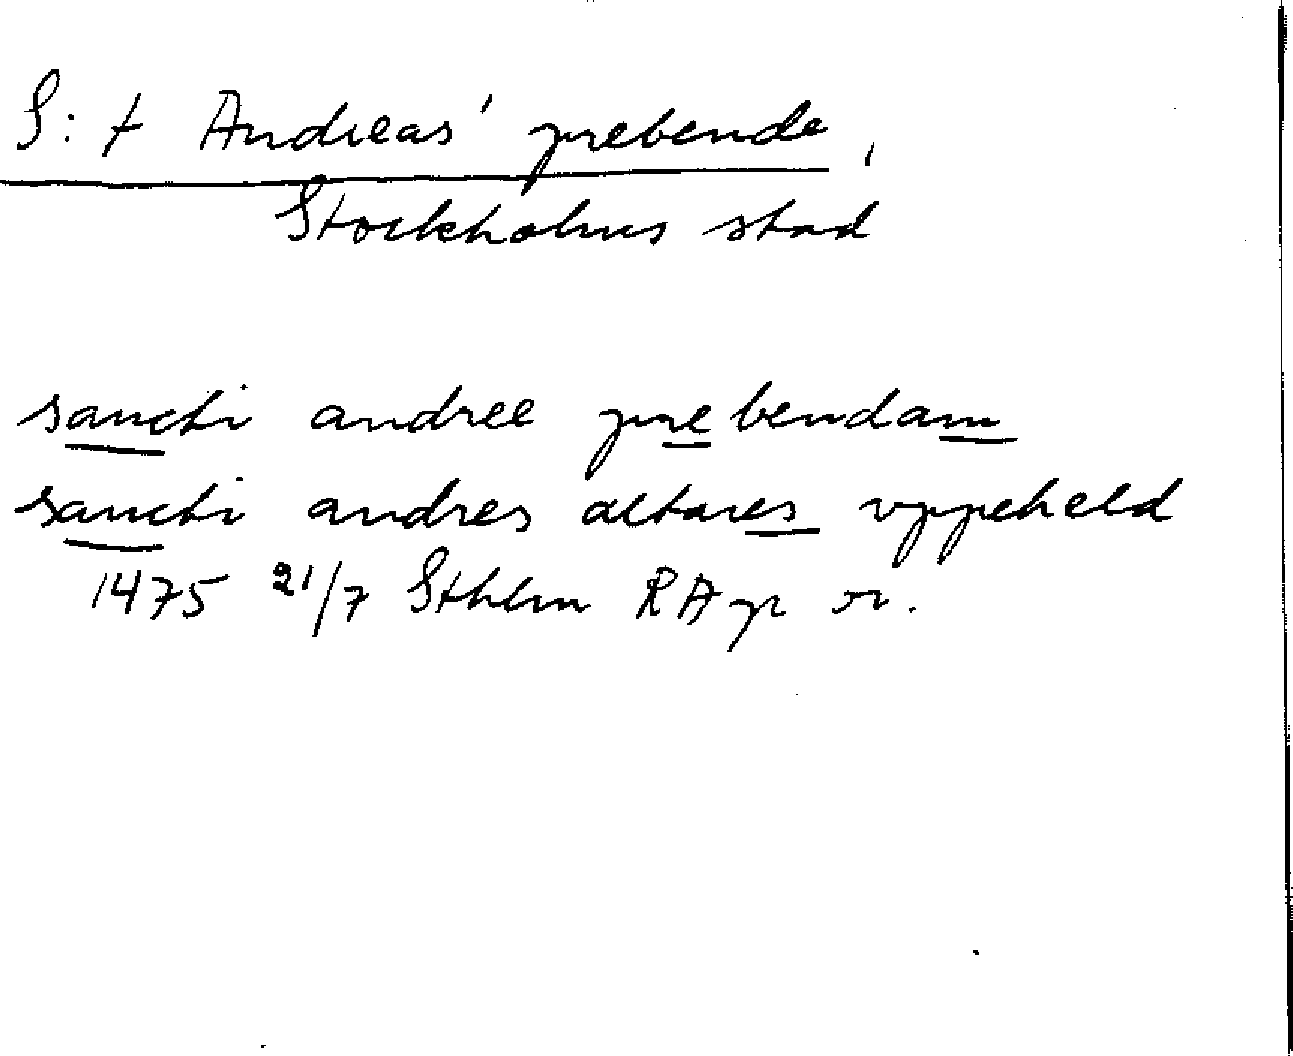 S:t Andreas' prebende,
Stockholms stad
sancti andree prebendam
sancti andres altares vppeheld
1475 21/7 Sthlm RAp or.